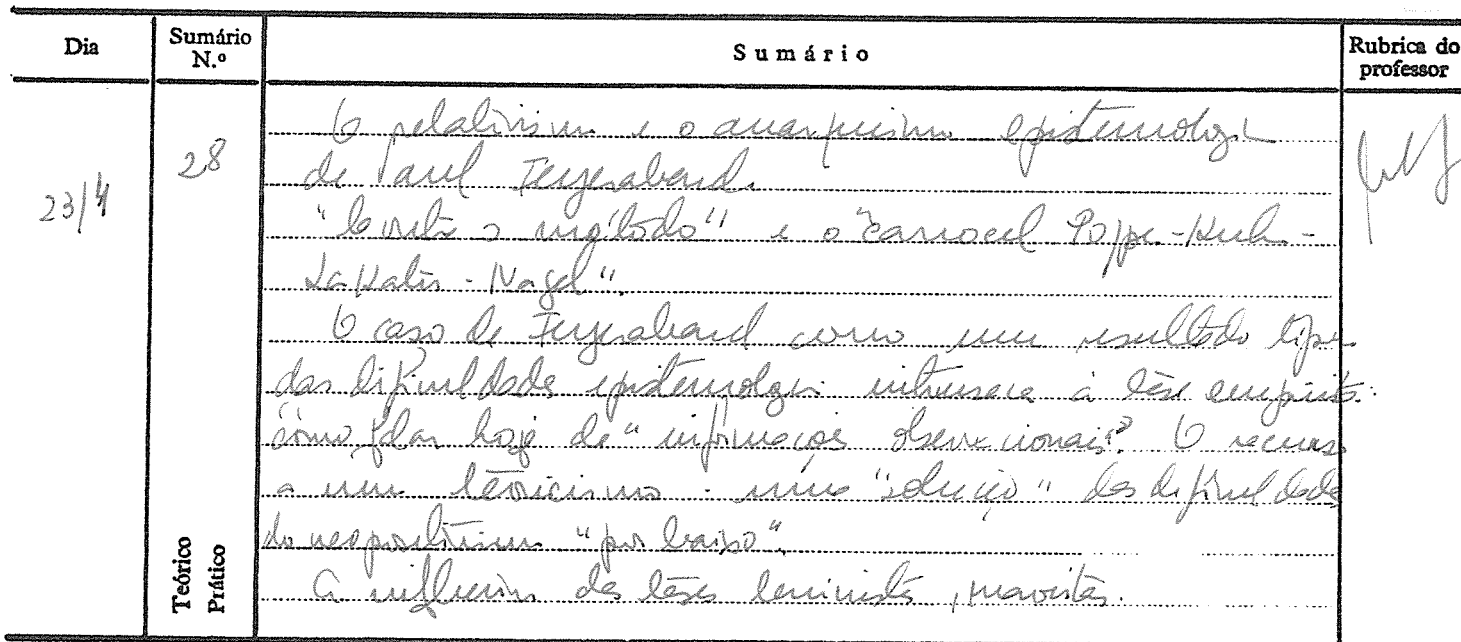 Dia
Sumário N.º
Sumário
Rubrica do professor
23/4
28
O relativismo e o anarquismo epistemológ
de Paul Feyerabend.
"Contra o método" e o "carrocel Popper-Kuhn-
Lakatos-Nagel".
O caso de Feyerabend como um resultado típico
das dificuldades epistemológi intrínseca à tese empirist:
como falar hoje de "informações observacionais"? O recurso
a um teoricismo - uma "solução" das dificuldade
do neopositivismo "por baixo".
A influência das teses leninistas, maoistas.
Teórico
Prático